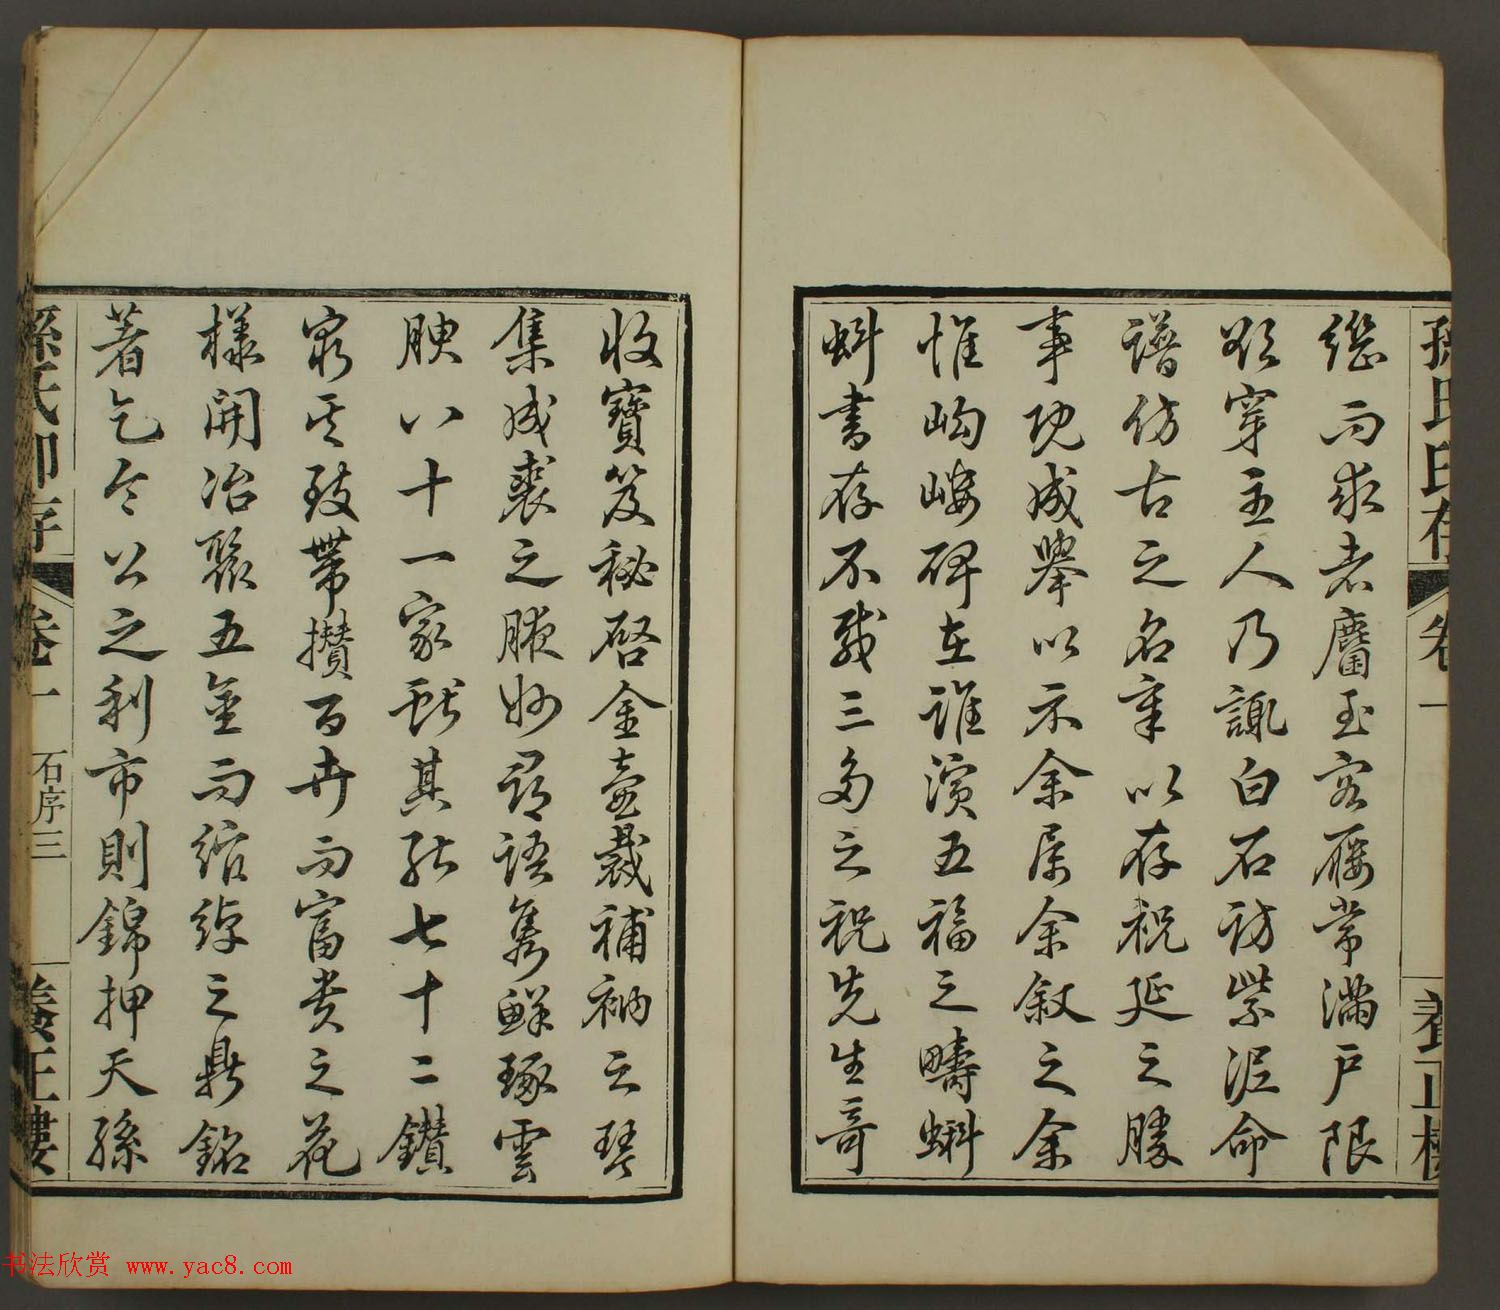 孫氏印存 卷一 養正樓
繼而求者麕至客屨常滿戶限
欲穿主人乃諏白石訪紫泥命
譜仿古之名章以存祝延之勝
事既成舉以示余屬余敘之余
惟岣嶁碑在誰演五福之疇蝌
蚪書存不載三多之祝先生奇
收寶笈秘啓金壺裁補衲之琴
集成裘之腋妙尋語雋鮮琢雲
腴八十一家獻其能七十二鑽
窮其致帶攢百卉而富貴之花
樣開冶聚五金而綰綽之鼎銘
著乞令公之利市則錦押天孫
孫氏印存 卷一 石序三 養正樓
书法欣赏 www.yac8.com